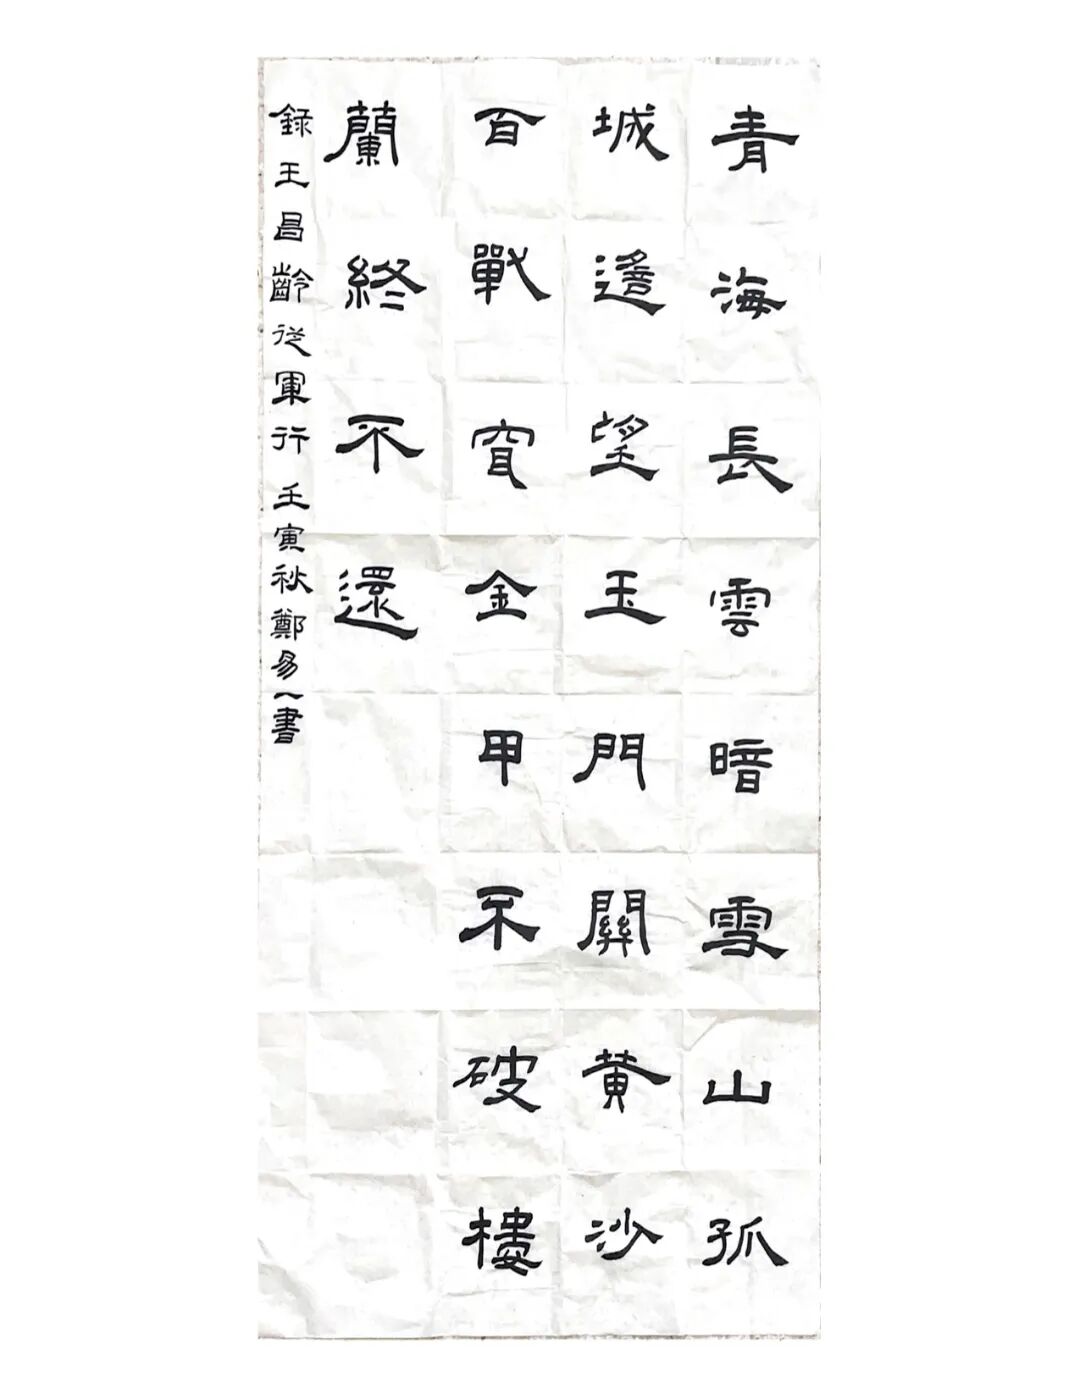 青海長雲暗雪山孤
城遙望玉門關黃沙
百戰穿金甲不破樓
蘭終不還
録王昌齡從軍行 壬寅秋鄭易一書